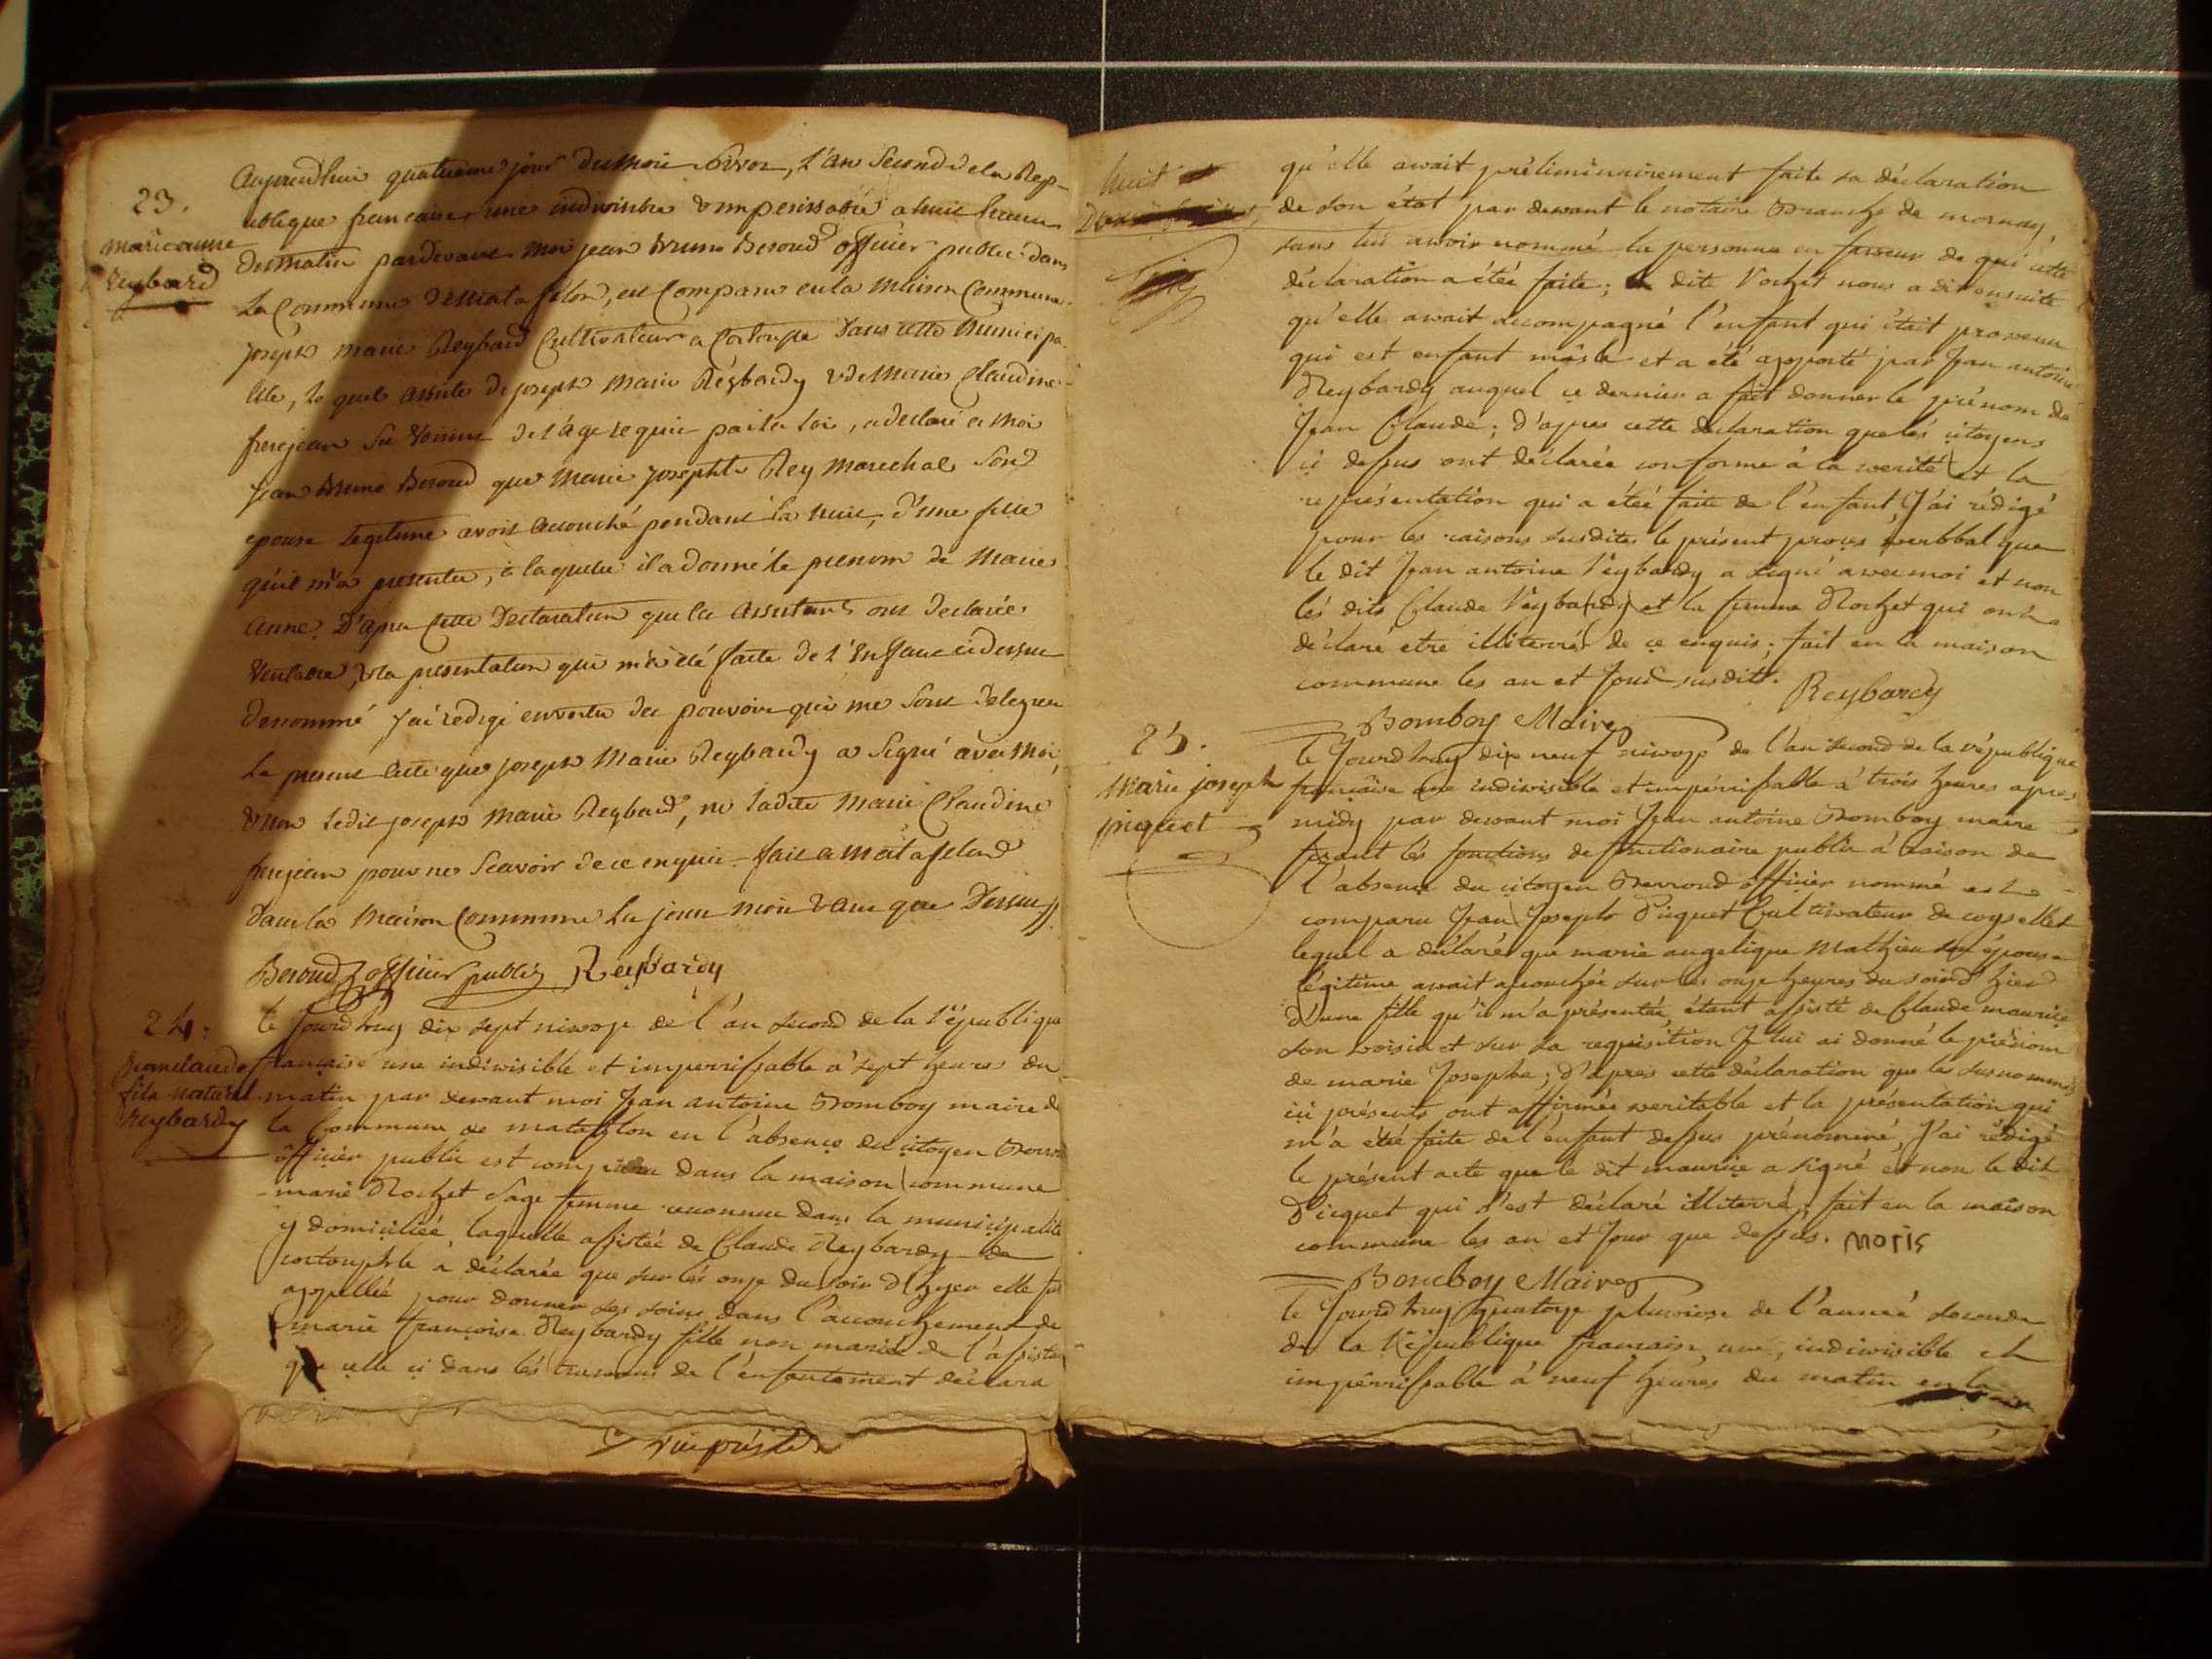 23.
marie anne
Reybard
Aujourdhui quatrieme jour du mois nivos, l'an second de la Rep-
ublique francaise une indivisible & imperissable a huit heures
du matin pardevant moi jean bruno Beroud officier public dans
la Commune de matafelon, est Comparu en la maison Commune
joseph marie Reybard Cultivateur a Cortouphle dans cette municipa-
lité, le quel assisté de joseph marie Reybardy & de marie Claudine
frerejean ses voisins de l'âge requis par la loi, a declaré a moi
jean bruno Beroud que marie josephte Rey marechal son
epouse legitime avoit accouché pendant la nuit, d'une fille
qu'il m'a presentée, à laquelle il a donné le prenom de marie
anne. D'apres cette declaration que les assistants ont declarée
veritable, & la presentation qui m'a été faite de l'enfant ci dessus
denommé j'ai redigé en vertu des pouvoirs qui me sont delegués
le present acte que joseph marie Reybardy a signé avec moi,
& non ledit joseph marie Reybard, ni ladite marie Claudine
frerejean pour ne scavoir de ce enquis. fait a matafelond
dans la maison Commune les jour mois & an que dessus
Beroud officier public Reybardy
24.
jean claude
fils naturel
Reybardy
Le jourdhuy dix sept nivose de l'an second de la République
française une indivisible et imperrissable a sept heures du
matin par devant moi Jean antoine Bomboy maire de
la Commune de matafelon en l'absence du citoyen Berroud
officier public est comparu dans la maison commune
marie Rochet sage femme reconnue dans la municipalité
y domiciliée, laquelle assistée de Claude Reybardy de
cortouphle a déclarée que sur les onze du soir d'hyer elle fut
appellée pour donner ses soins dans l'accouchement de
marie françoise Reybardy fille non mariée de l'assistant
que celle ci dans les travaux de l'enfantement déclara
huit
qu'elle avait préliminairement faite sa déclaration
de son état par devant le notaire de mornay,
sans lui avoir nommé la personne en faveur de qui cette
déclaration a étée faite; la dite Rochet nous a dit ensuite
qu'elle avait accompagné l'enfant qui était provenu
qui est enfant mâsle et a été apporté par Jean antoine
Reybardy auquel ce dernier a fait donner le prénom de
Jean Claude; d'apres cette déclaration que lés citoyens
ci dessus ont déclarée conforme à la verité et la
représentation qui a étée faite de l'enfant, J'ai rédigé
pour les raisons susdites le présent procès verbbal que
le dit Jean antoine Reybardy a signé avec moi et non
lés dits Claude Reybardy et la femme Rochet qui ont
déclaré etre illiterrés de ce enquis; fait en la maison
commune les an et Jour susdits. Reybardy
Bomboy Maire
25.
Marie joseph
piquet
Le Jourdhuy dix neuf nivose de l'an second de la république
française une indivisible et impérrissable à trois heures apres
midy par devant moi Jean antoine Bomboy maire
faisant lés fonctions de fonctionaire public à raison de
l'absence du citoyen Berroud officier nommé est
comparu Jean Joseph Piquet Cultivateur de coysellet
lequel a déclaré que marie angelique Mathieu son épouse
légitime avait accouchée sur les onze heures du soir d'hier
d'une fille qu'il m'a présentée, étant assisté de Claude maurice
son voisin et sur sa requisition Je lui ai donné le prénom
de marie Josephe; d'apres cette déclaration que les susnommés
ici présents ont affirmée veritable et la présentation qui
m'a étée faite de l'enfant dessus prénommé, J'ai rédigé
le présent acte que le dit maurice a signé et non le dit
Picquet qui s'est déclaré illiterré; fait en la maison
commune les an et Jour que dessus. moris
Bomboy Maire
Le Jourdhuy quatorze pluviose de l'année seconde
de la République française, une, indivisible et
impérrissable à neuf heures du matin en la